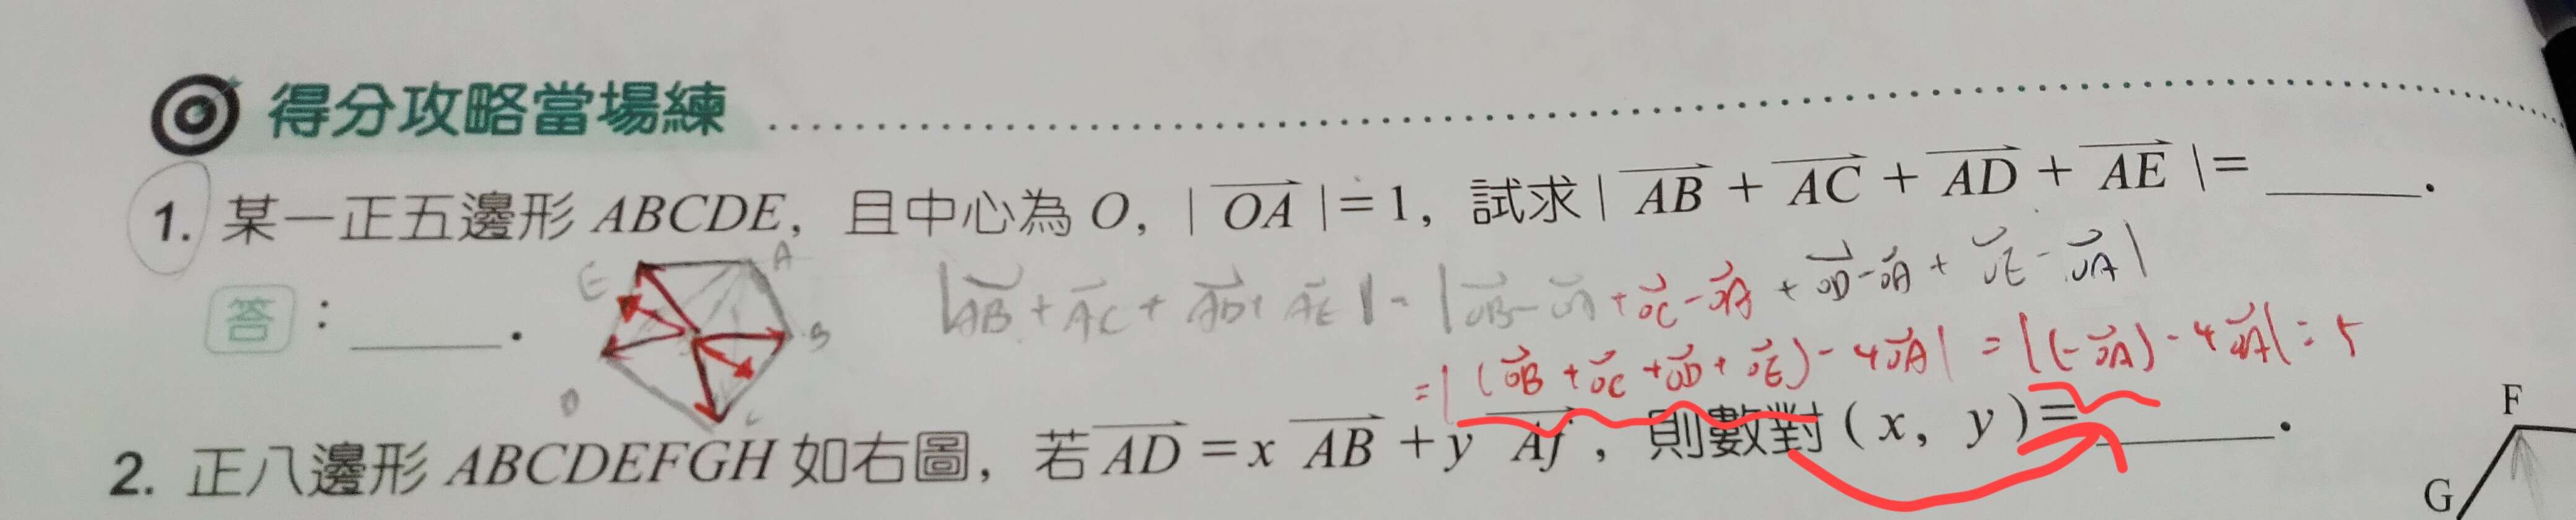 得分攻略當場練
1. 某一正五邊形 ABCDE，且中心為 O，| OA |=1，試求 | AB + AC + AD + AE |= ______.
答：______.
E A B C D
|AB + AC + AD + AE| = |OB - OA + OC - OA + OD - OA + OE - OA|
= |(OB + OC + OD + OE) - 4OA| = |(-OA) - 4OA| = 5
2. 正八邊形 ABCDEFGH 如右圖，若 AD = x AB + y Af，則數對 (x, y) = ______.
F
G